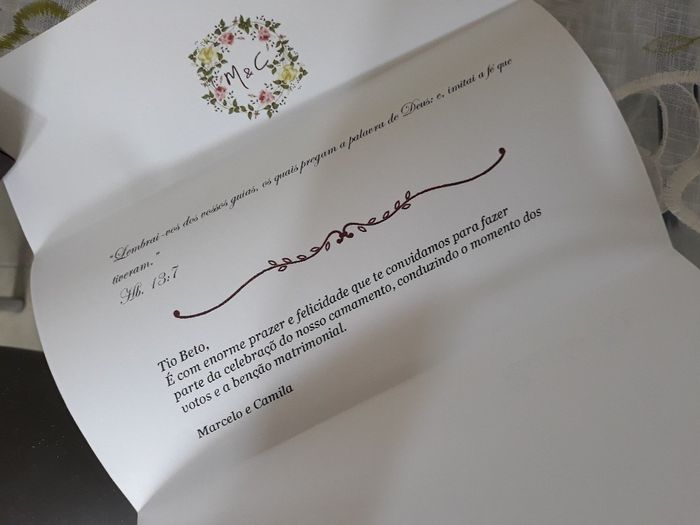 M & C
"Lembrai-vos dos vossos guias, os quais pregam a palavra de Deus; e, imitai a fé que
tiveram."
Hb. 13:7
Tio Beto,
É com enorme prazer e felicidade que te convidamos para fazer
parte da celebraçõ do nosso camamento, conduzindo o momento dos
votos e a benção matrimonial.
Marcelo e Camila